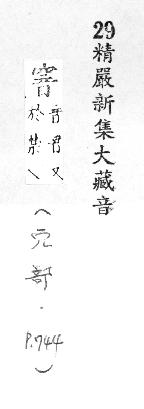 29精嚴新集大藏音
窨
音君又
於禁乀
(穴部．P.744)